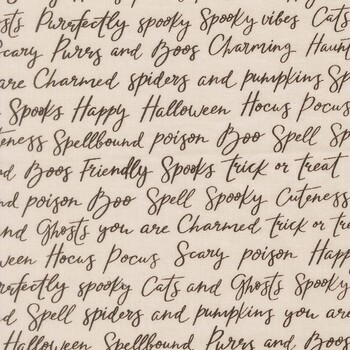 sts Purrfectly spooky Spooky vibes Cats
Scary Purrs and Boos Charming Haun
are Charmed spiders and pumpkins Sp
Spooks Happy Halloween Hocus Pocus
teness Spellbound poison Boo Spell Sp
d Boos Friendly Spooks trick or treat
nd poison Boo Spell Spooky Cuteness
and Ghosts you are Charmed trick or tre
ween Hocus Pocus Scary poison Happ
rrfectly spooky Cats and Ghosts Spooky
d Spell spiders and pumpkins you are
Halloween Spellbound Purrs and Boos